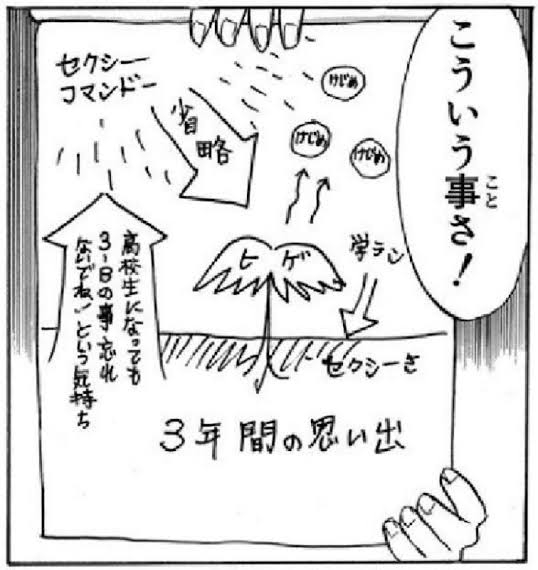 こういう事さ!
こと
セクシー
コマンドー
省略
けじめ
けじめ
けじめ
ヒゲ
学ラン
高校生になっても
3-Bの事忘れ
ないでね!という気持ち
セクシーさ
3年間の思い出